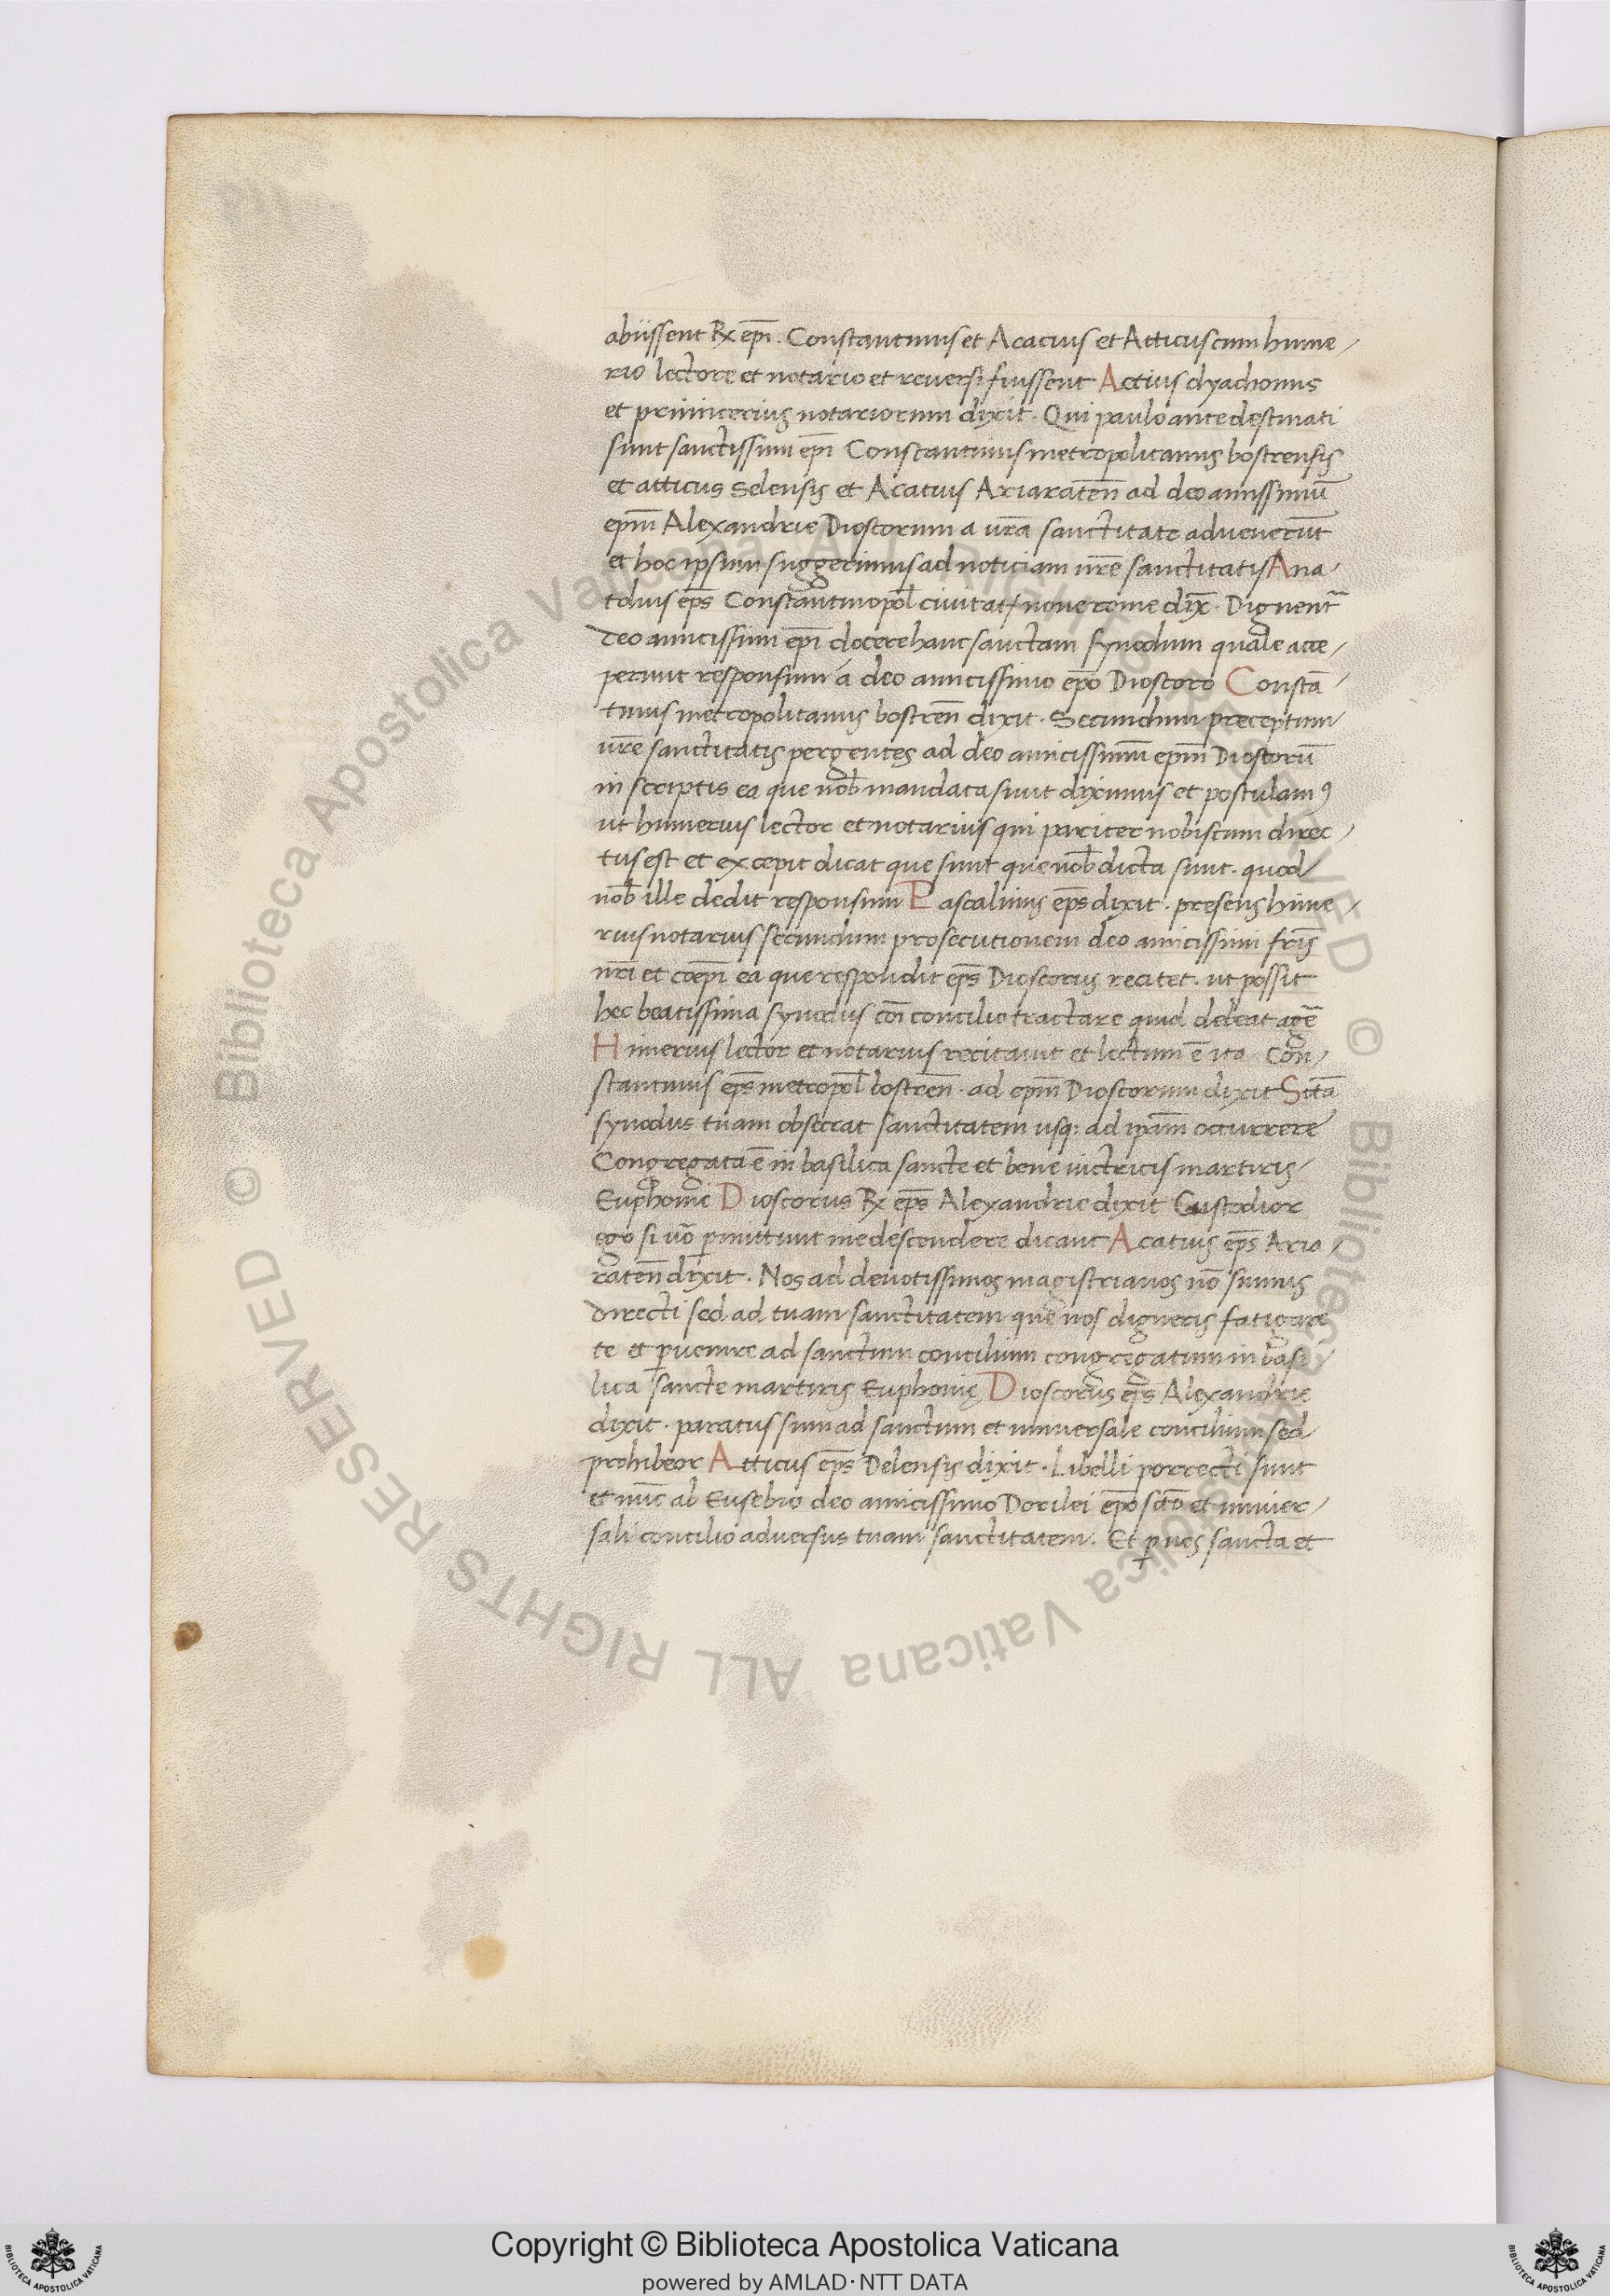 abiissent Rx ep̄i. Constantinus et Acacius et Atticus cum hime/
rio lectore et notario et reuersi fuissent Aetius dyachonus
et primicerius notariorum dixit. Qui paulo ante destinati
sunt sanctissimi ep̄i Constantinus metropolitanus bostrensis
et atticus Selensis et Acatius Ariaraten̄ ad deo amissimū
ep̄m Alexandrie Dioscorum a ūra sanctitate aduenerūt
et hoc ipsum suggerimus ad noticiam ūre sanctitatis Ana/
tolius ep̄s Constantinopol̄ ciuitat noue rome dix̄. Dignent̄
deo amicissimi ep̄i docere hanc sanctam synodum quale acce/
perunt responsum á deo amicissimo ep̄o Dioscoro Constā/
tinus metropolitanus bostren̄ dixit. Secundum preceptum
ūre sanctitatis pergentes ad deo amicissimū ep̄m Dioscorū
in scriptis ea que nob̄ mandata sunt diximus et postulamꝰ
ut himerius lector et notarius qui pariter nobiscum direc/
tus est et excepit dicat que sunt que nob̄ dicta sunt. quod
nob̄ ille dedit responsum Pascalinus ep̄s dixit. presens hime/
rius notarius secundum prosecutionem deo amicissimi fr̄is
nr̄i et coep̄i ea que respondit ep̄s Dioscorus recitet. ut possit
hec beatissima synodus cōi concilio tractare quid debeat agē
Himerius lector et notarius recitauit et lectum ē ita Con/
stantinus ep̄s metropol̄ bostren̄. ad ep̄m Dioscorum dixit Sctā
synodus tuam obsecrat sanctitatem usq: ad ip̄am occurrere
Congregata ē in basilica sancte et bene uictricis martiris/
Euphomię Dioscorus Rx ep̄s Alexandrie dixit Custodior
ego si ūo ꝑmittunt me descendere dicant Acatius ep̄s Aria/
raten̄ dixit. Nos ad deuotissimos magistrianos nō sumus
directi sed ad tuam sanctitatem que nos digneris fatigare
te et ꝑuenire ad sanctum concilium congregatum in basi/
lica sancte martiris Euphomię Dioscorus ep̄s Alexandrie
dixit. paratus sum ad sanctum et uniuersale concilium sed
prohibeor Atticus ep̄s Delensis dixit. Libelli porrecti sunt
et nūc ab Eusebio deo amicissimo Dorilei ep̄o sctō et uniuer/
sali concilio aduersus tuam sanctitatem. Et ꝑ nes sancta et
Copyright © Biblioteca Apostolica Vaticana
powered by AMLAD·NTT DATA